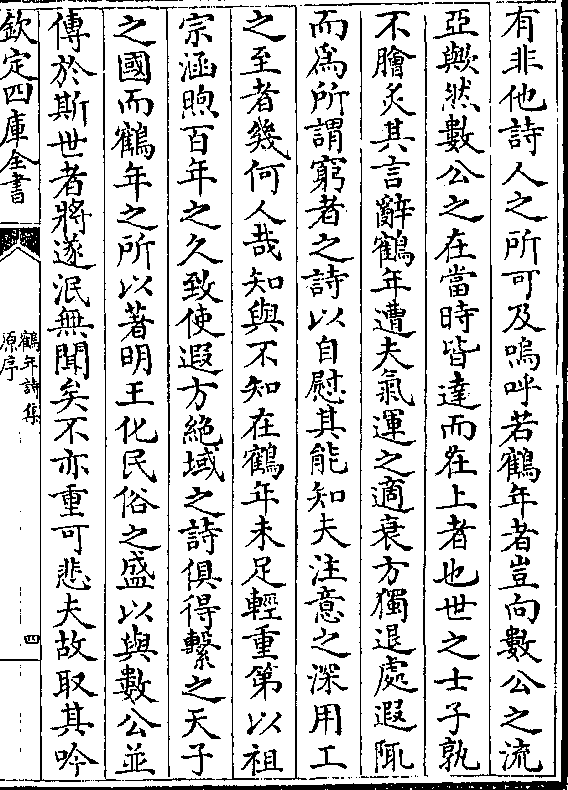 有非他詩人之所可及嗚呼若鶴年者豈向數公之流
亞歟然數公之在當時皆達而在上者也世之士子孰
不膾炙其言辭鶴年遭夫氣運之適衰方獨退處遐陬
而為所謂窮者之詩以自慰其能知夫注意之深用工
之至者幾何人哉知與不知在鶴年未足輕重第以祖
宗涵煦百年之久致使遐方絶域之詩俱得繫之天子
之國而鶴年之所以著明王化民俗之盛以與數公並
傳於斯世者將遂泯無聞矣不亦重可悲夫故取其吟
欽定四庫全書
鶴年詩集
原序
四